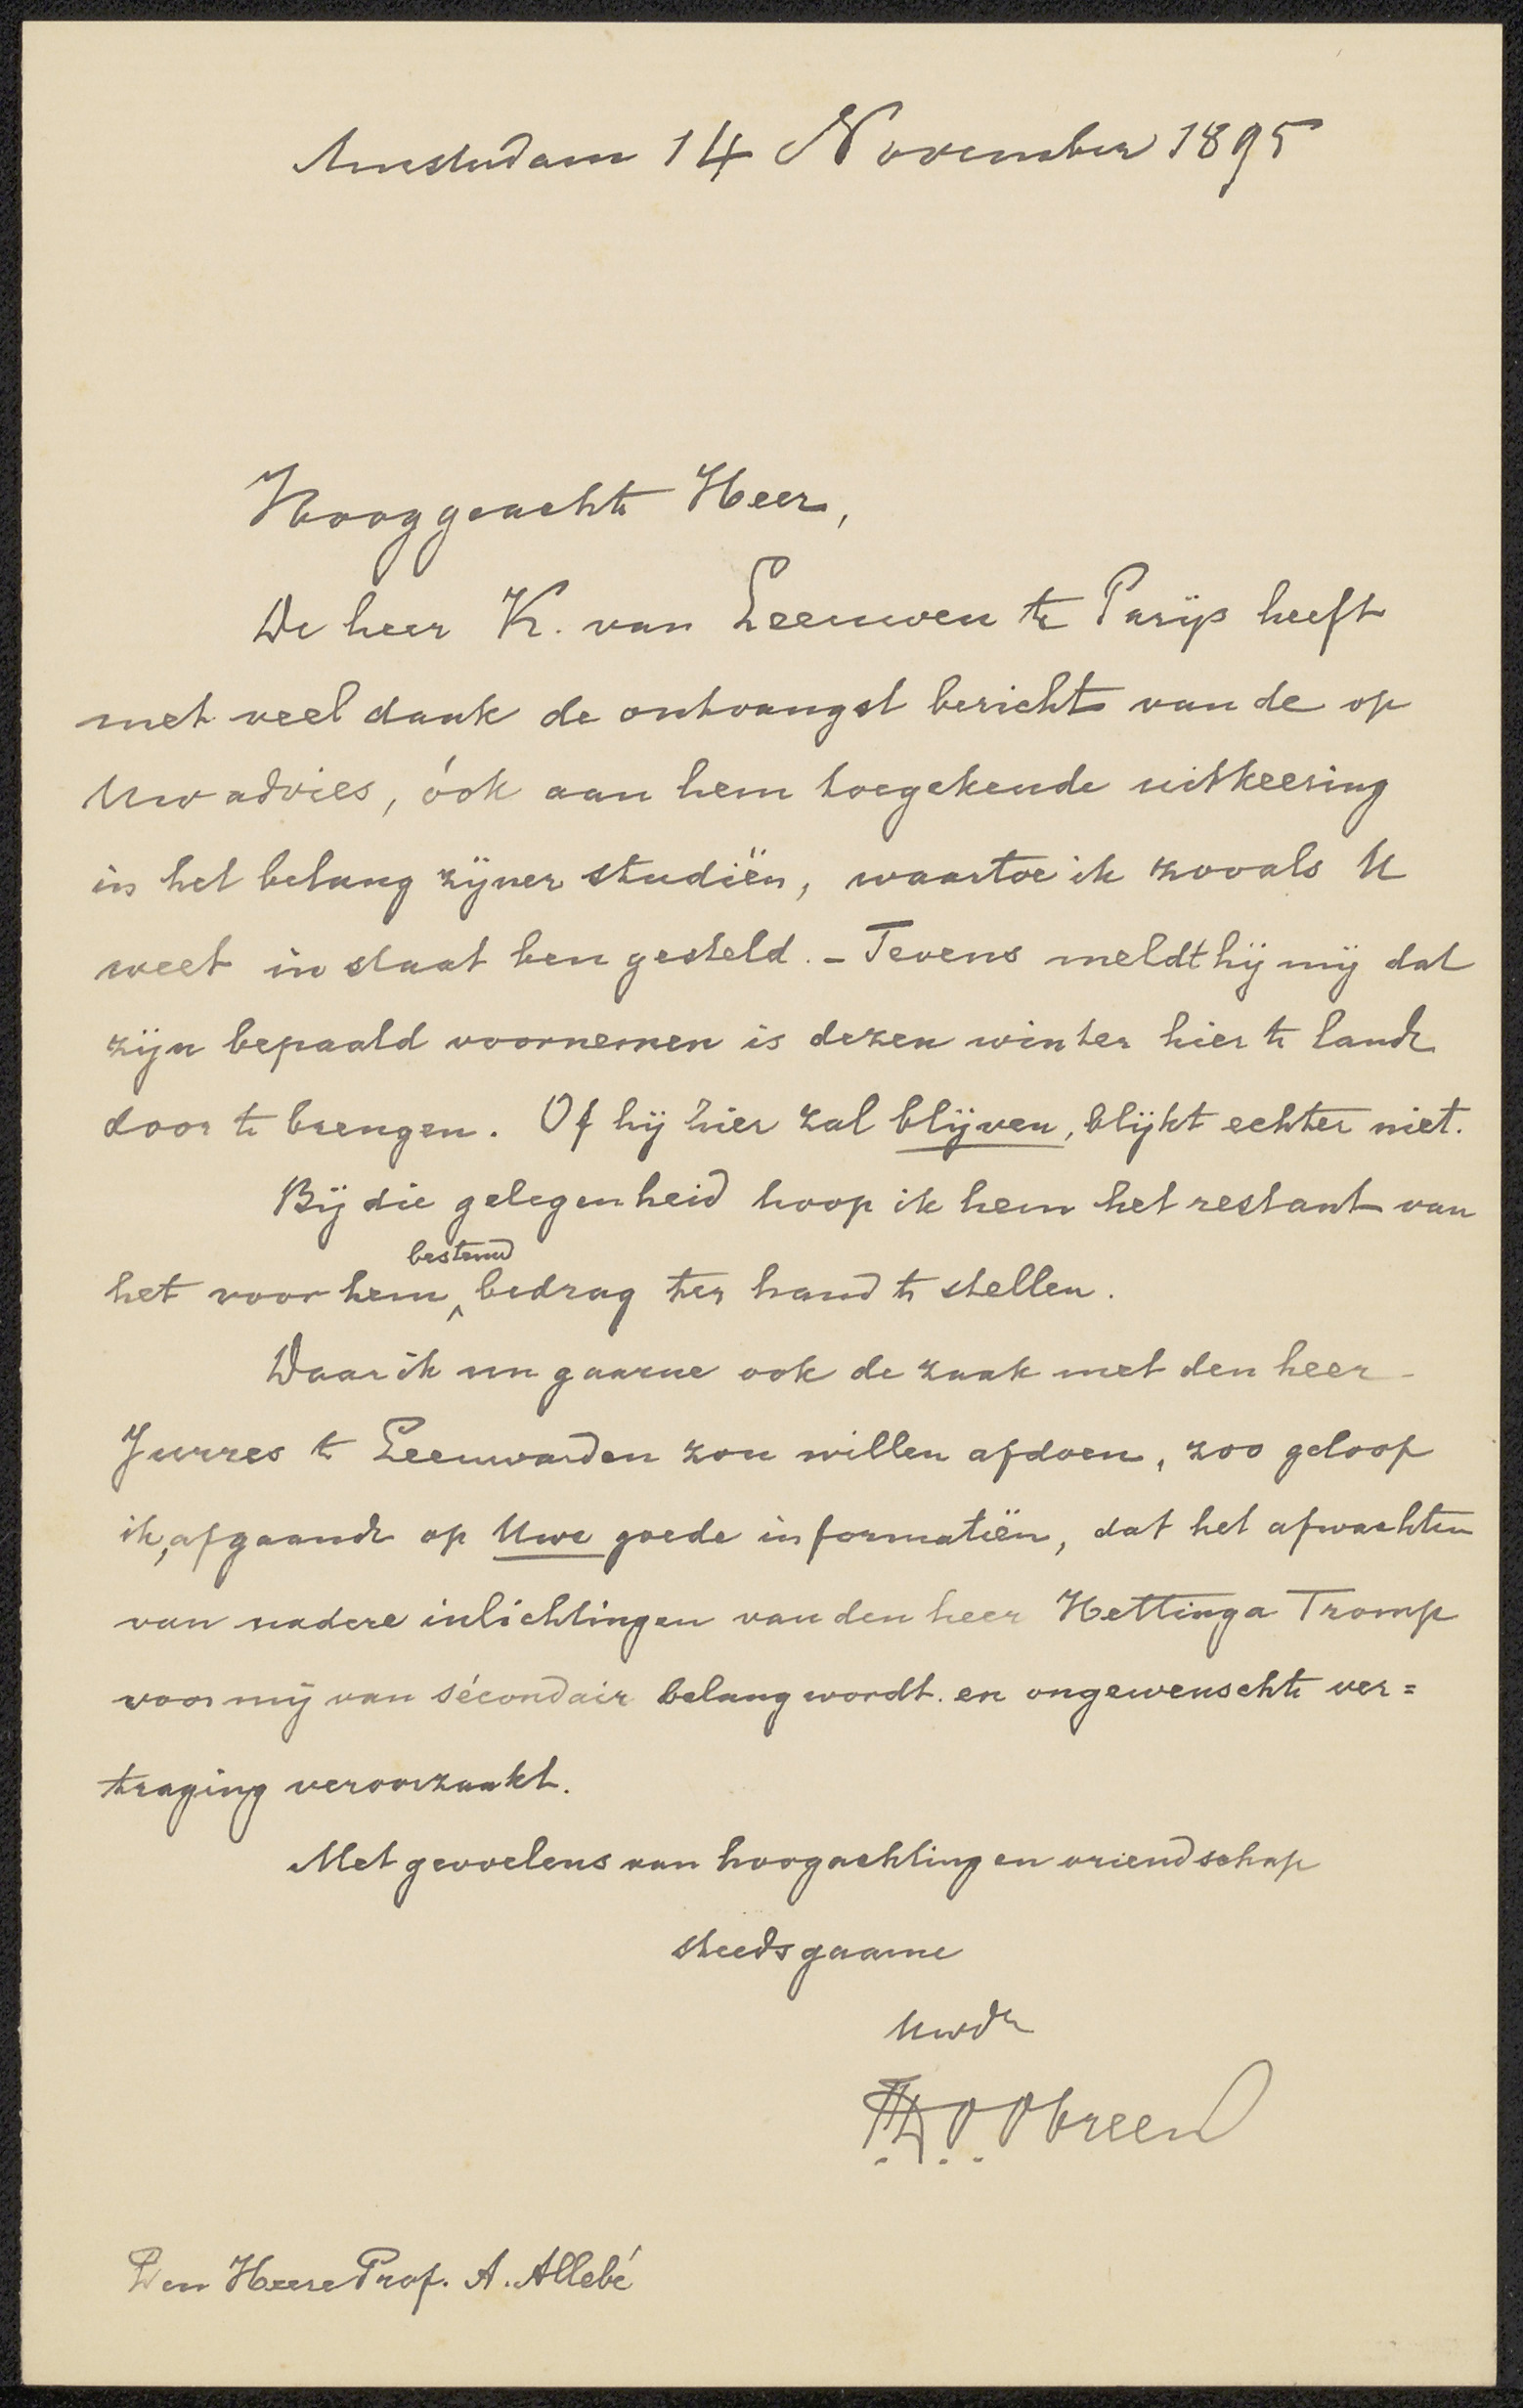 Amsterdam 14 November 1895
Hooggeachte Heer,
De heer K. van Leeuwen te Parijs heeft
met veel dank de ontvangst bericht van de op
Uw advies, óok aan hem toegekende uitkeering
in het belang zijner studiën, waartoe ik zooals U
weet in staat ben gesteld. – Tevens meldt hij mij dat
zijn bepaald voornemen is dezen winter hier te lande
door te brengen. Of hij hier zal blijven, blijkt echter niet.
Bij die gelegenheid hoop ik hem het restant van
bestemd
het voor hem ^ bedrag ter hand te stellen.
Daar ik nu gaarne ook de zaak met den heer
Jurres te Leeuwarden zou willen afdoen, zoo geloof
ik, afgaande op Uwe goede informatiën, dat het afwachten
van nadere inlichtingen van den heer Hettinga Tromp
voor mij van sécondair belang wordt en ongewenschte ver=
traging veroorzaakt.
Met gevoelens van hoogachting en vriendschap
steeds gaarne
Uwdr
F.D.O. Obreen
Den Heere Prof. A. Allebé